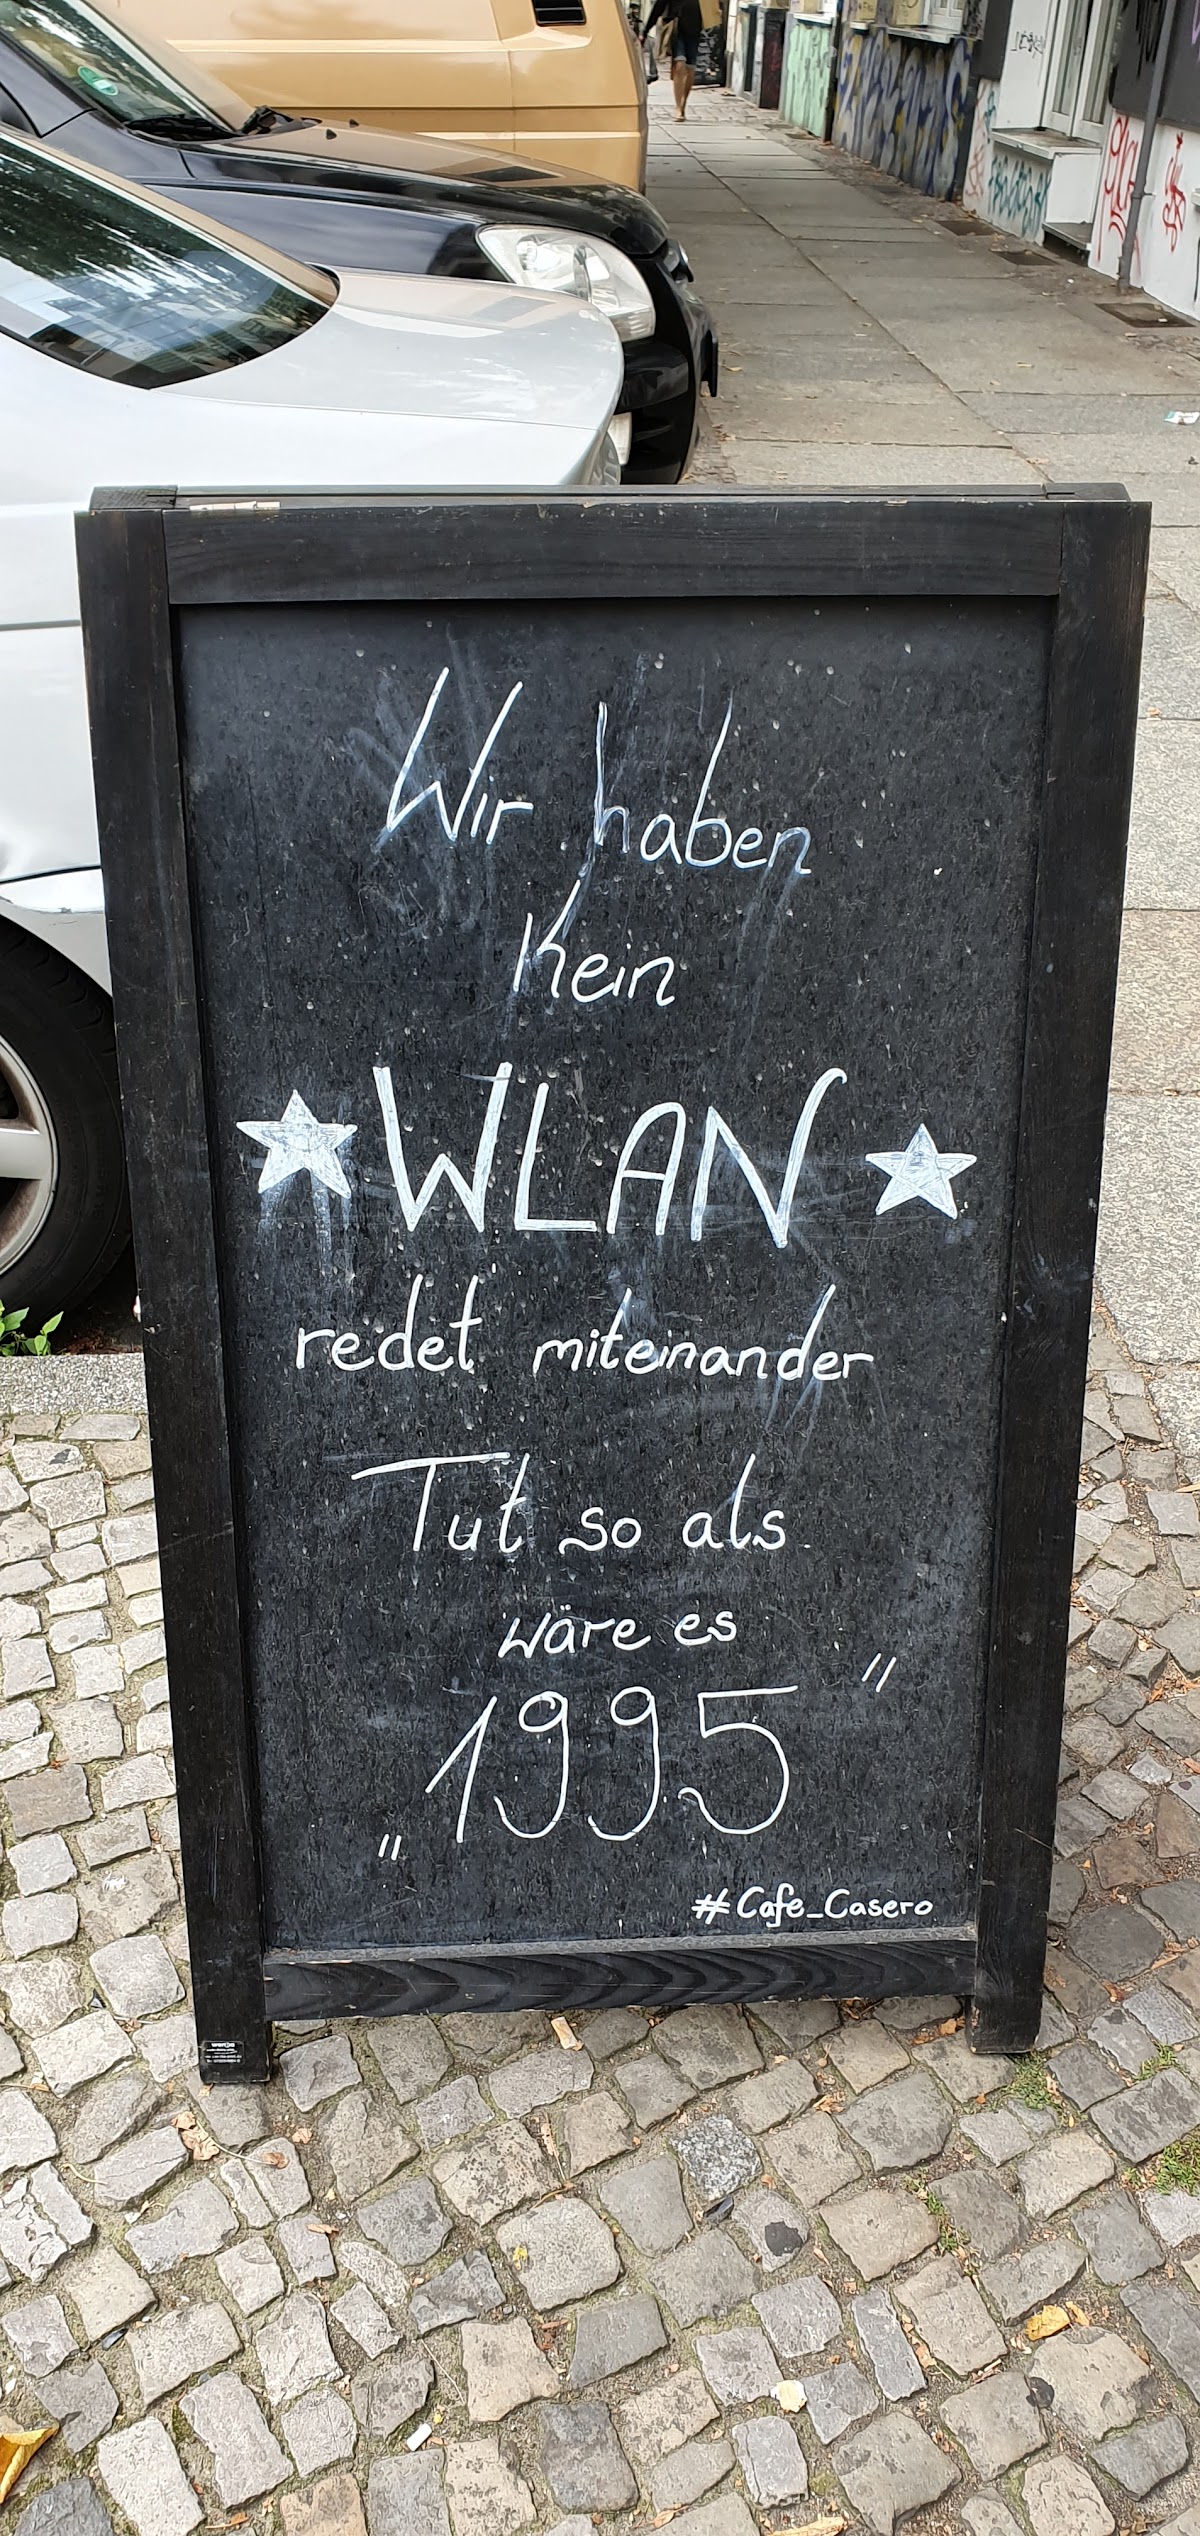 Wir haben
Kein
WLAN
redet miteinander
Tut so als
wäre es
„1995"
#Cafe_Casero